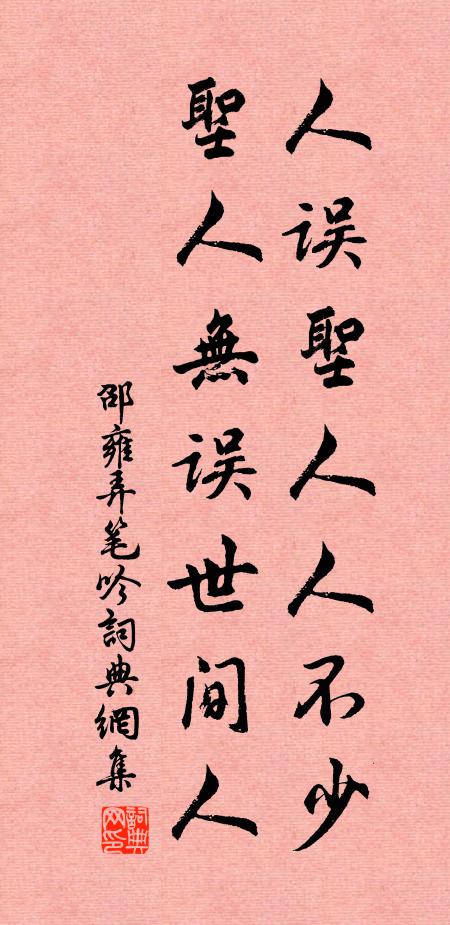 人误聖人人不少
聖人無误世间人
邵雍弄笔吟詞典網集
詞典
网印